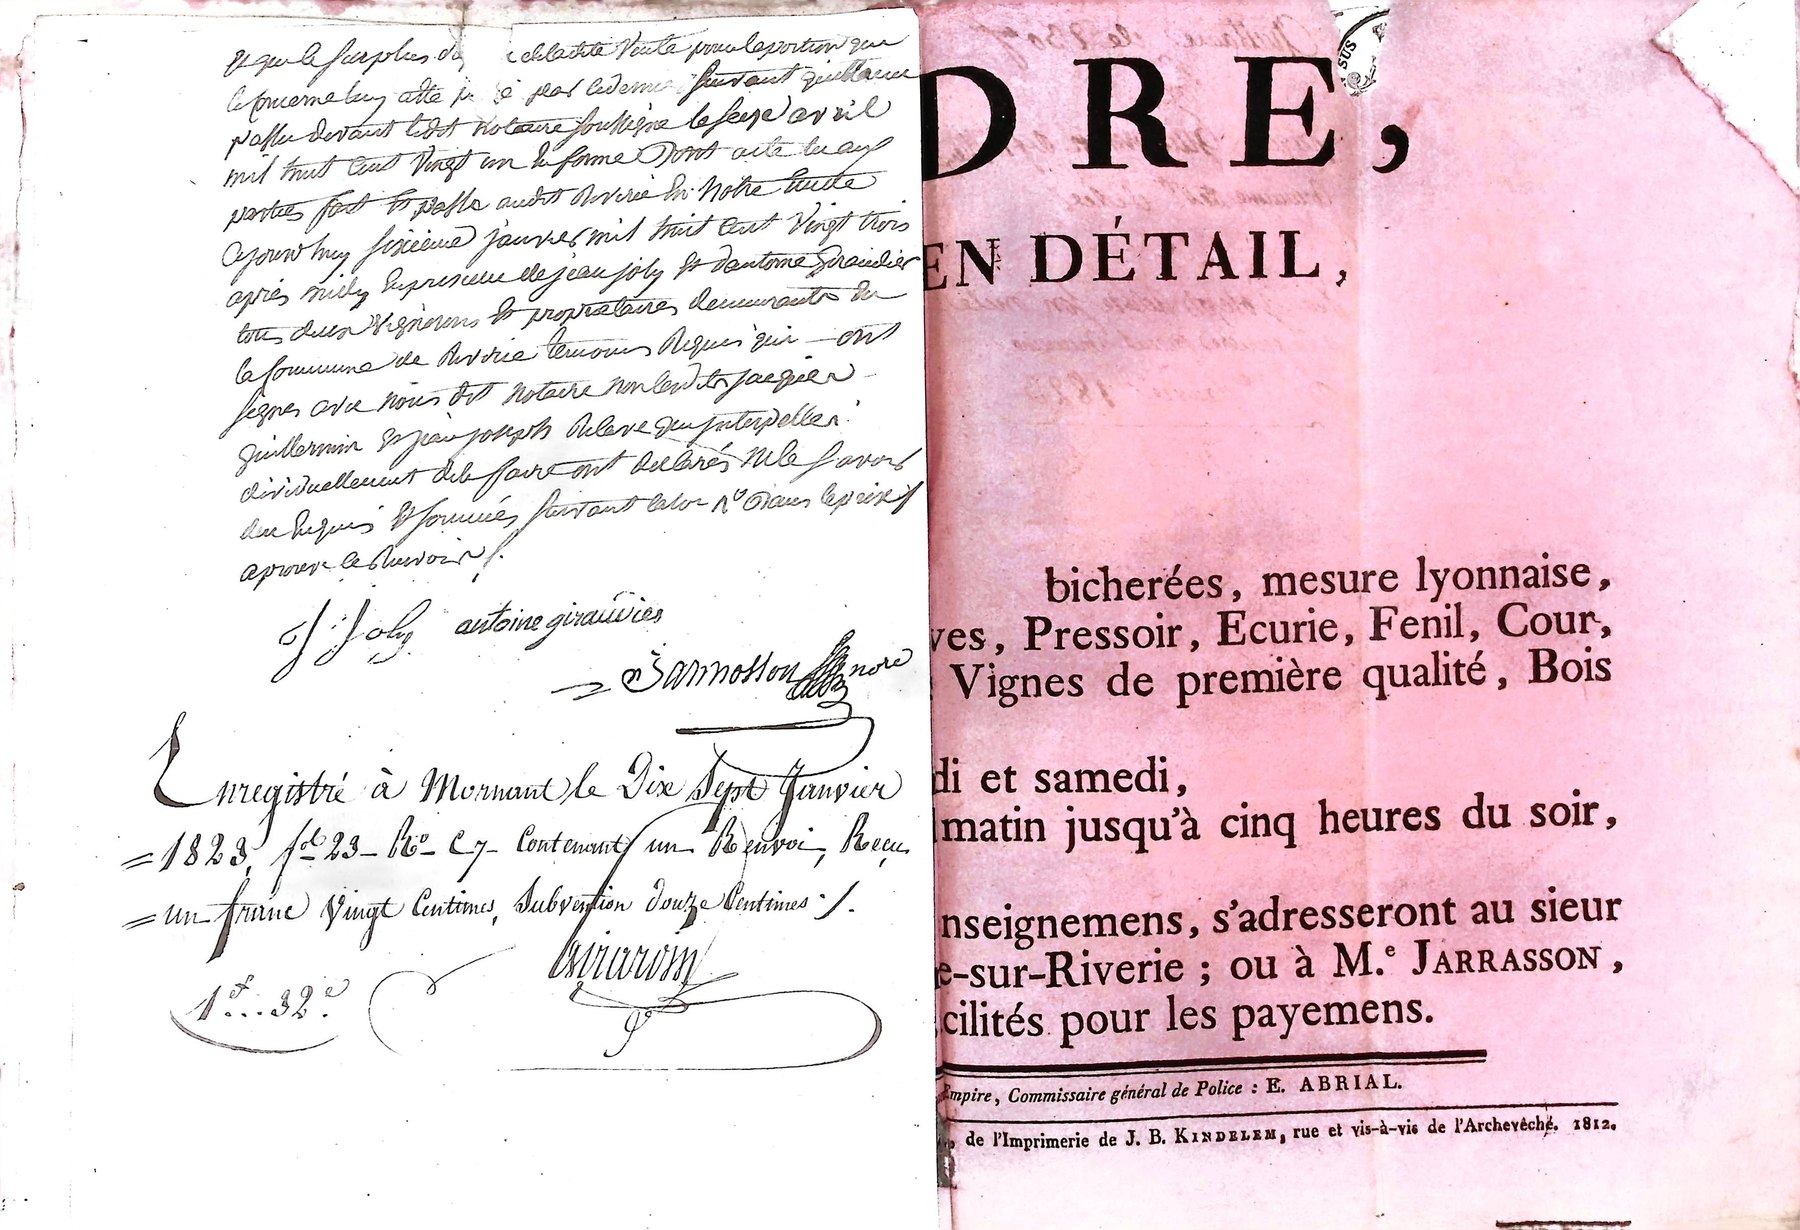 et que le surplus du de ladite Vente pour la portion que
le concerne luy a été par le dernier suivant quittance
passée devant ledit Notaire soussigné le seize avril
mil huit cent Vingt un En forme Dont acte lu aux
parties fait Et passé audit Riverie En Notre Etude
Cejourd'huy sixième janvier mil huit cent Vingt trois
après midy En presence de jean joly Et d'antoine Giraudier
tous deux Vignerons Et propriétaires demeurants En
la Commune de Riverie temoins Requis qui ont
signés avec nous dit Notaire non lesdits jacques
guillermin Et jean joseph qui Interpellés
individuellement de le faire ont déclarés Ne le savoir
de ce Enquis Et sommés suivant la loi
aprouvé le Renvoi ./.
J. Joly antoine giraudier
Jarrosson nore
Enregistré à Mornant le Dix Sept Janvier
=1823, fol 23 Ro C 7 Contenant un Renvoi, Reçu
=un franc Vingt Centimes, Subvention douze Centimes ./.
1 f...32 c
DRE,
EN DÉTAIL,
bicherées, mesure lyonnaise,
ves, Pressoir, Ecurie, Fenil, Cour,
Vignes de première qualité, Bois
di et samedi,
matin jusqu'à cinq heures du soir,
nseignemens, s'adresseront au sieur
e-sur-Riverie ; ou à M.e JARRASSON,
cilités pour les payemens.
Empire, Commissaire général de Police : E. ABRIAL.
de l'Imprimerie de J. B. KINDELEM, rue et vis-à-vis de l'Archevêché. 1812.